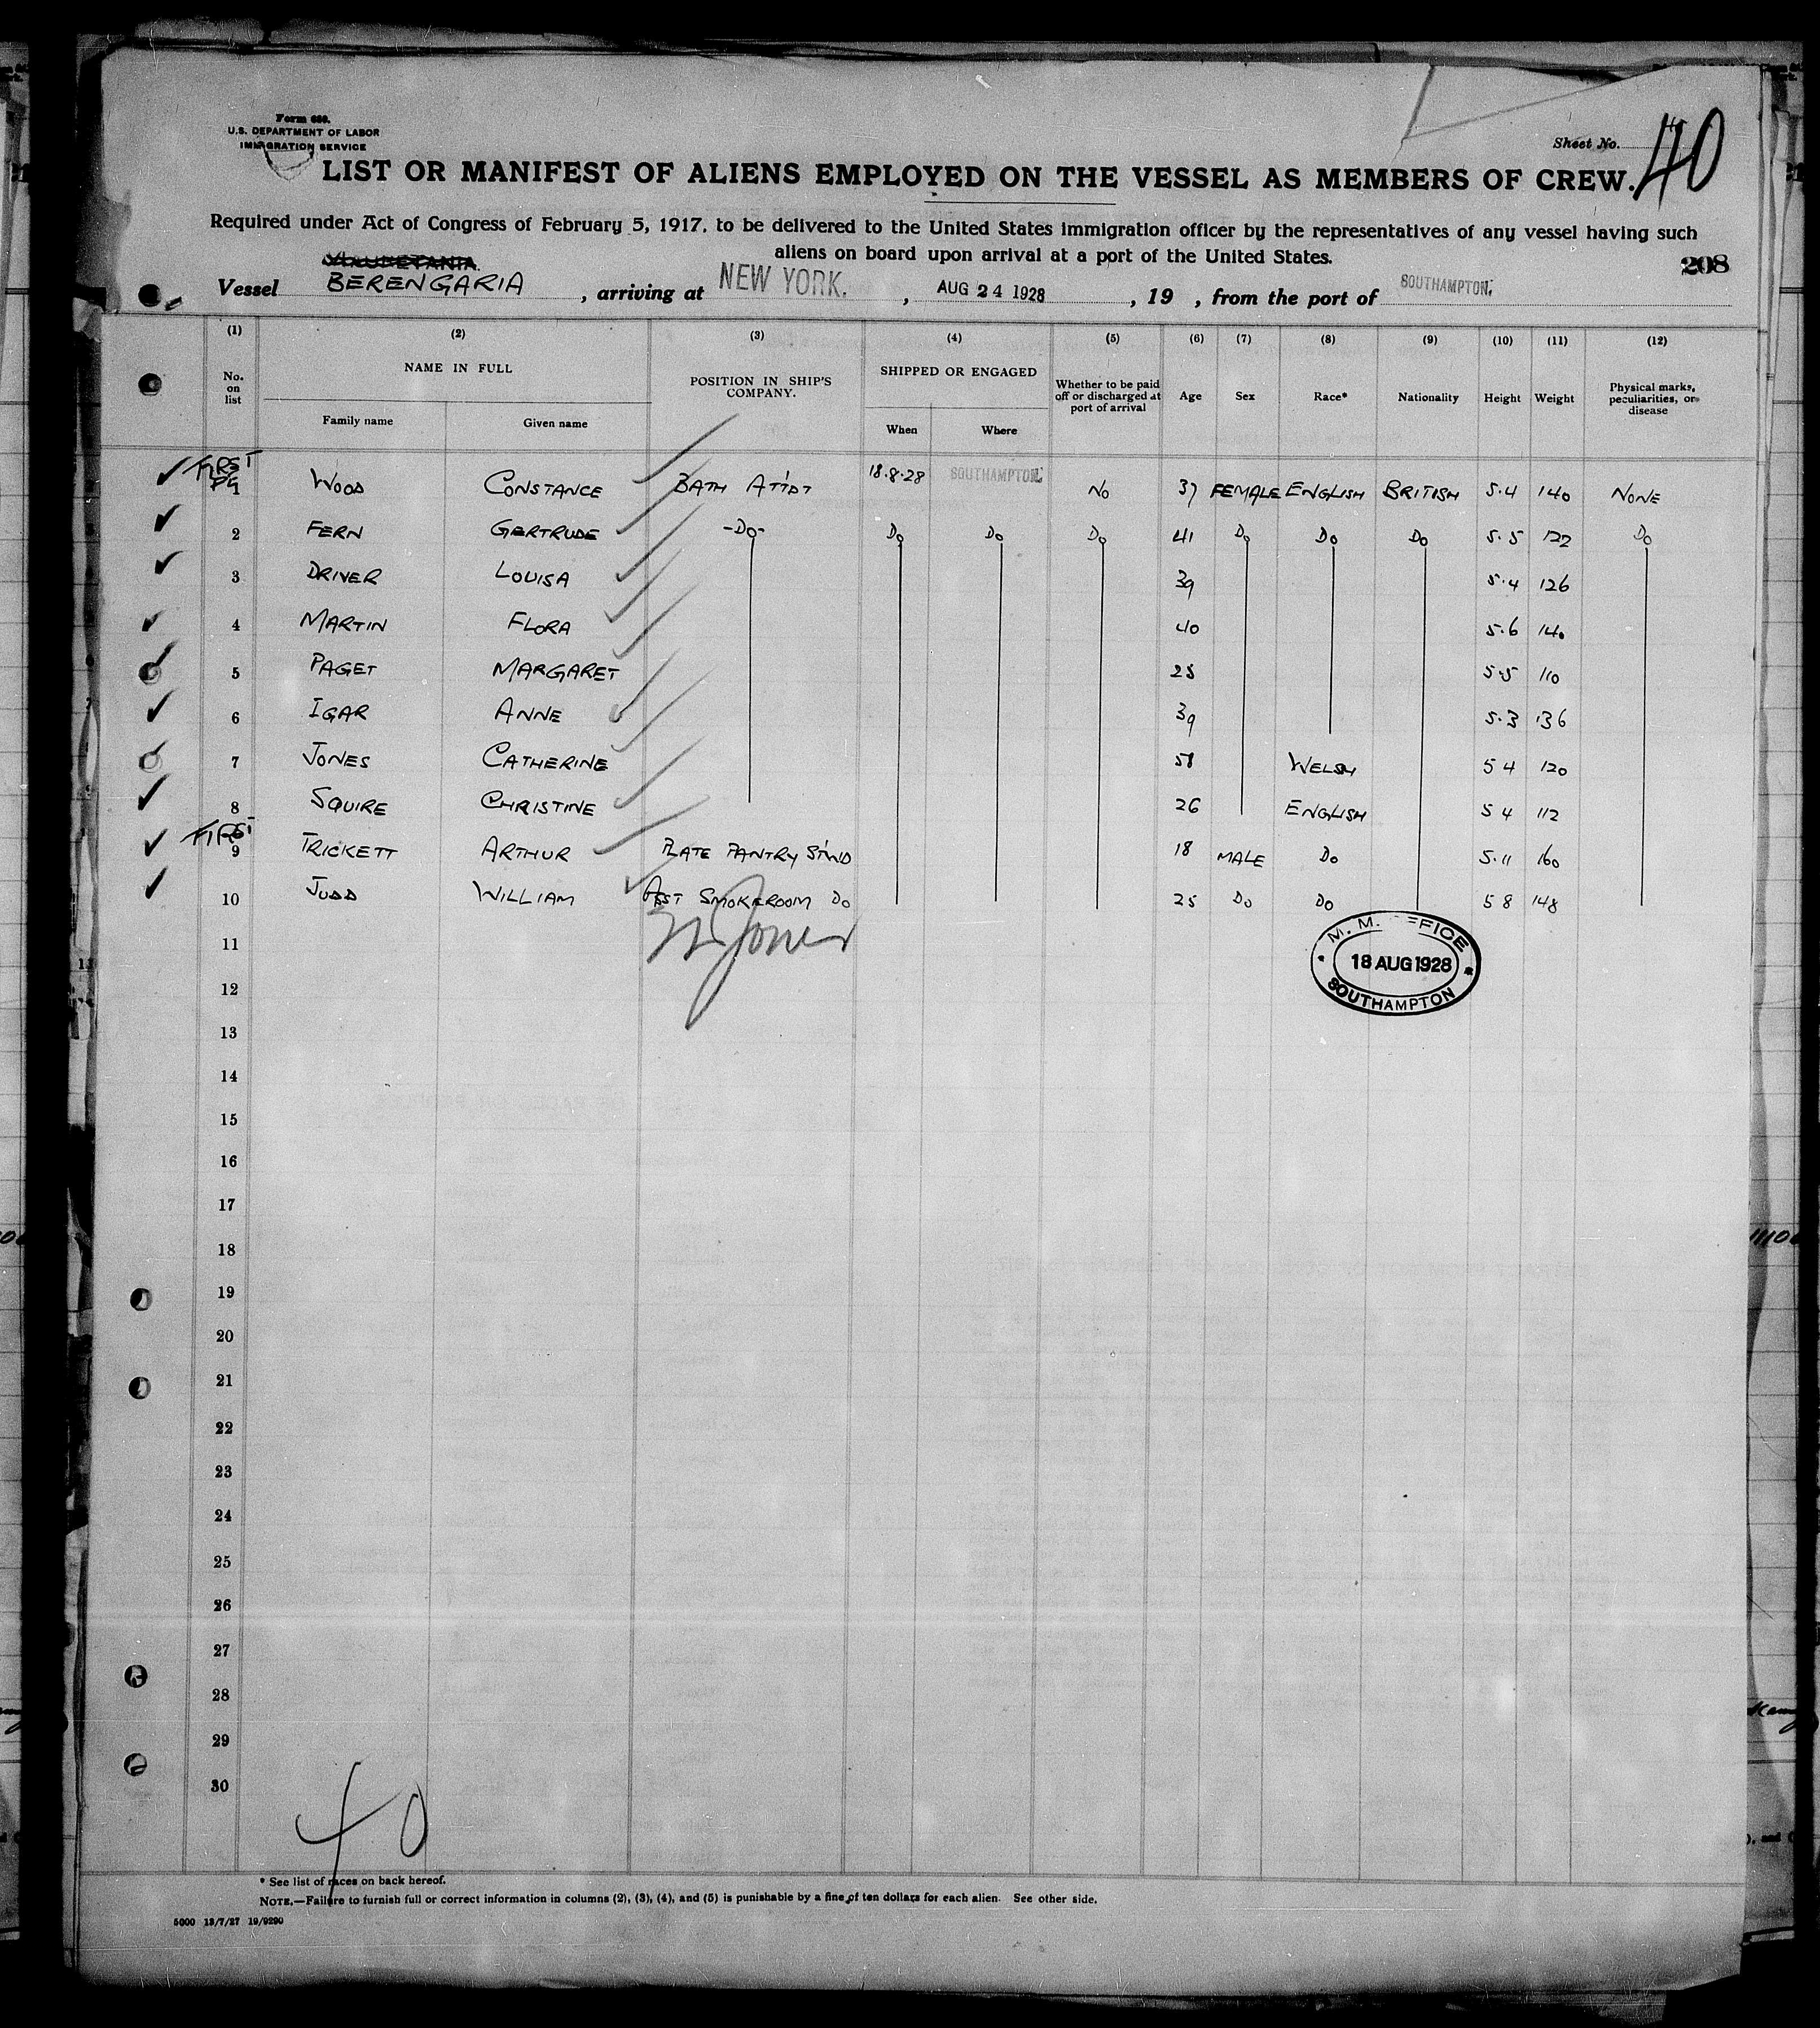 Form 689.
U.S. DEPARTMENT OF LABOR
IMMIGRATION SERVICE
Sheet No. 40
LIST OR MANIFEST OF ALIENS EMPLOYED ON THE VESSEL AS MEMBERS OF CREW.
Required under Act of Congress of February 5, 1917, to be delivered to the United States immigration officer by the representatives of any vessel having such
aliens on board upon arrival at a port of the United States.
208
MAURETANIA
Vessel BERENGARIA, arriving at NEW YORK., AUG 24 1928, 19 , from the port of SOUTHAMPTON.
(1) (2) (3) (4) (5) (6) (7) (8) (9) (10) (11) (12)
No. on list NAME IN FULL POSITION IN SHIP'S COMPANY. SHIPPED OR ENGAGED Whether to be paid off or discharged at port of arrival Age Sex Race* Nationality Height Weight Physical marks, peculiarities, or disease
Family name Given name When Where
FIRST
1 WOOD CONSTANCE BATH ATT'DT 18.8.28 SOUTHAMPTON. NO 37 FEMALE ENGLISH BRITISH 5.4 140 NONE
2 FERN GERTRUDE -DO- DO DO DO 41 DO DO DO 5.5 122 DO
3 DRIVER LOUISA 39 5.4 126
4 MARTIN FLORA 40 5.6 140
5 PAGET MARGARET 25 5.5 110
6 IGAR ANNE 39 5.3 136
7 JONES CATHERINE 58 WELSH 5 4 120
8 SQUIRE CHRISTINE 26 ENGLISH 5 4 112
FIRST
9 TRICKETT ARTHUR PLATE PANTRY ST'WD 18 MALE DO 5.11 160
10 JUDD WILLIAM ASST SMOKEROOM DO 25 DO DO 5 8 148
11
M. M. OFFICE
18 AUG 1928
SOUTHAMPTON
12
13
14
15
16
17
18
19
20
21
22
23
24
25
26
27
28
29
30
40
* See list of races on back hereof.
NOTE.—Failure to furnish full or correct information in columns (2), (3), (4), and (5) is punishable by a fine of ten dollars for each alien. See other side.
5000 13/7/27 19/9290